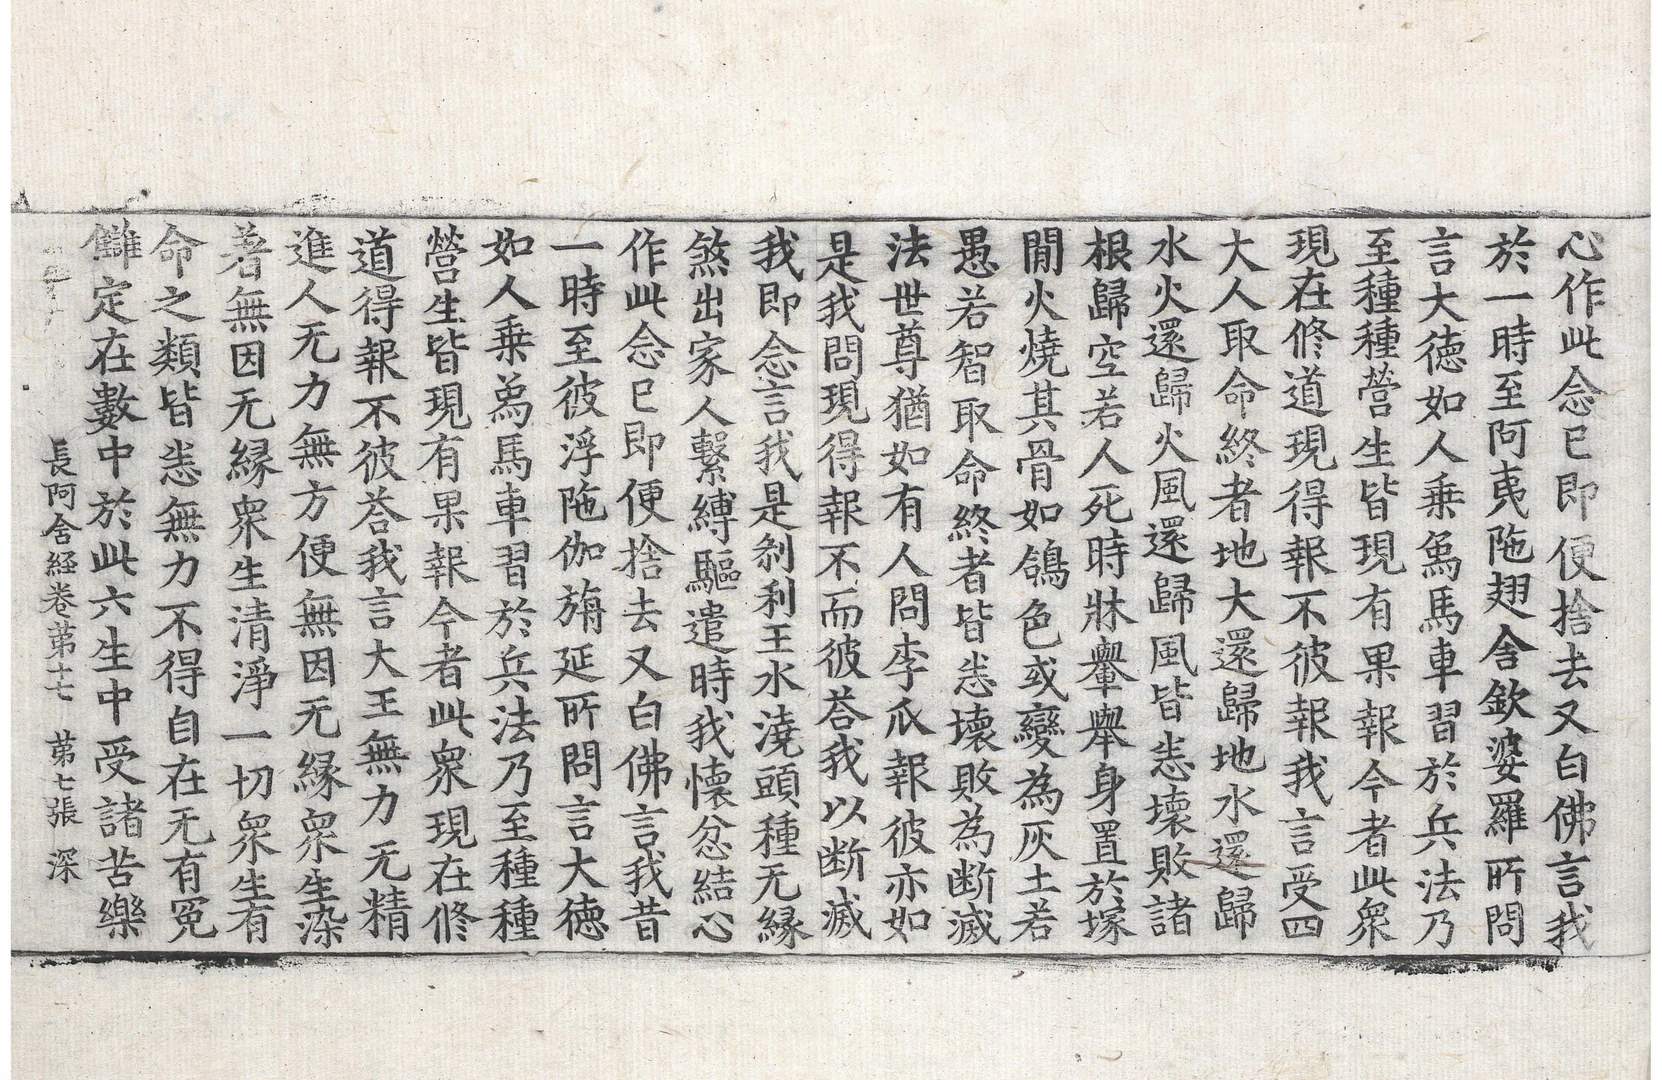 心作此念已即便捨去又白佛言我
於一時至阿夷陁翅舍欽婆羅所問
言大徳如人乗爲馬車習於兵法乃
至種種營生皆現有果報今者此衆
現在修道現得報不彼報我言受四
大人取命終者地大還歸地水還歸
水火還歸火風還歸風皆悉壞敗諸
根歸空若人死時牀轝舉身置於塚
閒火燒其骨如鴿色或變為灰土若
愚若智取命終者皆悉壞敗為断滅
法世尊猶如有人問李瓜報彼亦如
是我問現得報不而彼荅我以断滅
我即念言我是剎利王水澆頭種无縁
煞出家人繫縛驅遣時我懷忿結心
作此念已即便捨去又白佛言我昔
一時至彼浮陁伽旃延所問言大徳
如人乗爲馬車習於兵法乃至種種
營生皆現有果報今者此衆現在修
道得報不彼荅我言大王無力无精
進人无力無方便無因无縁衆生染
著無因无縁衆生清淨一切衆生有
命之類皆悉無力不得自在无有冤
讎定在數中於此六生中受諸苦樂
長阿含経卷第十七 第七張 深